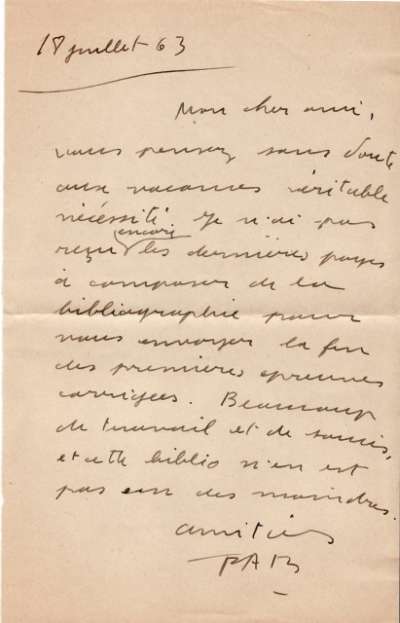 18 juillet 63
Mon cher ami,
vous pensez sans doute
aux vacances véritable
nécessité. Je n'ai pas
encore
reçu les dernières pages
à composer de la
bibliographie pour
vous envoyer la fin
des premières épreuves
corrigées. Beaucoup
de travail et de soucis,
et cette biblio n'en est
pas un des moindres.
amitiés
PAB